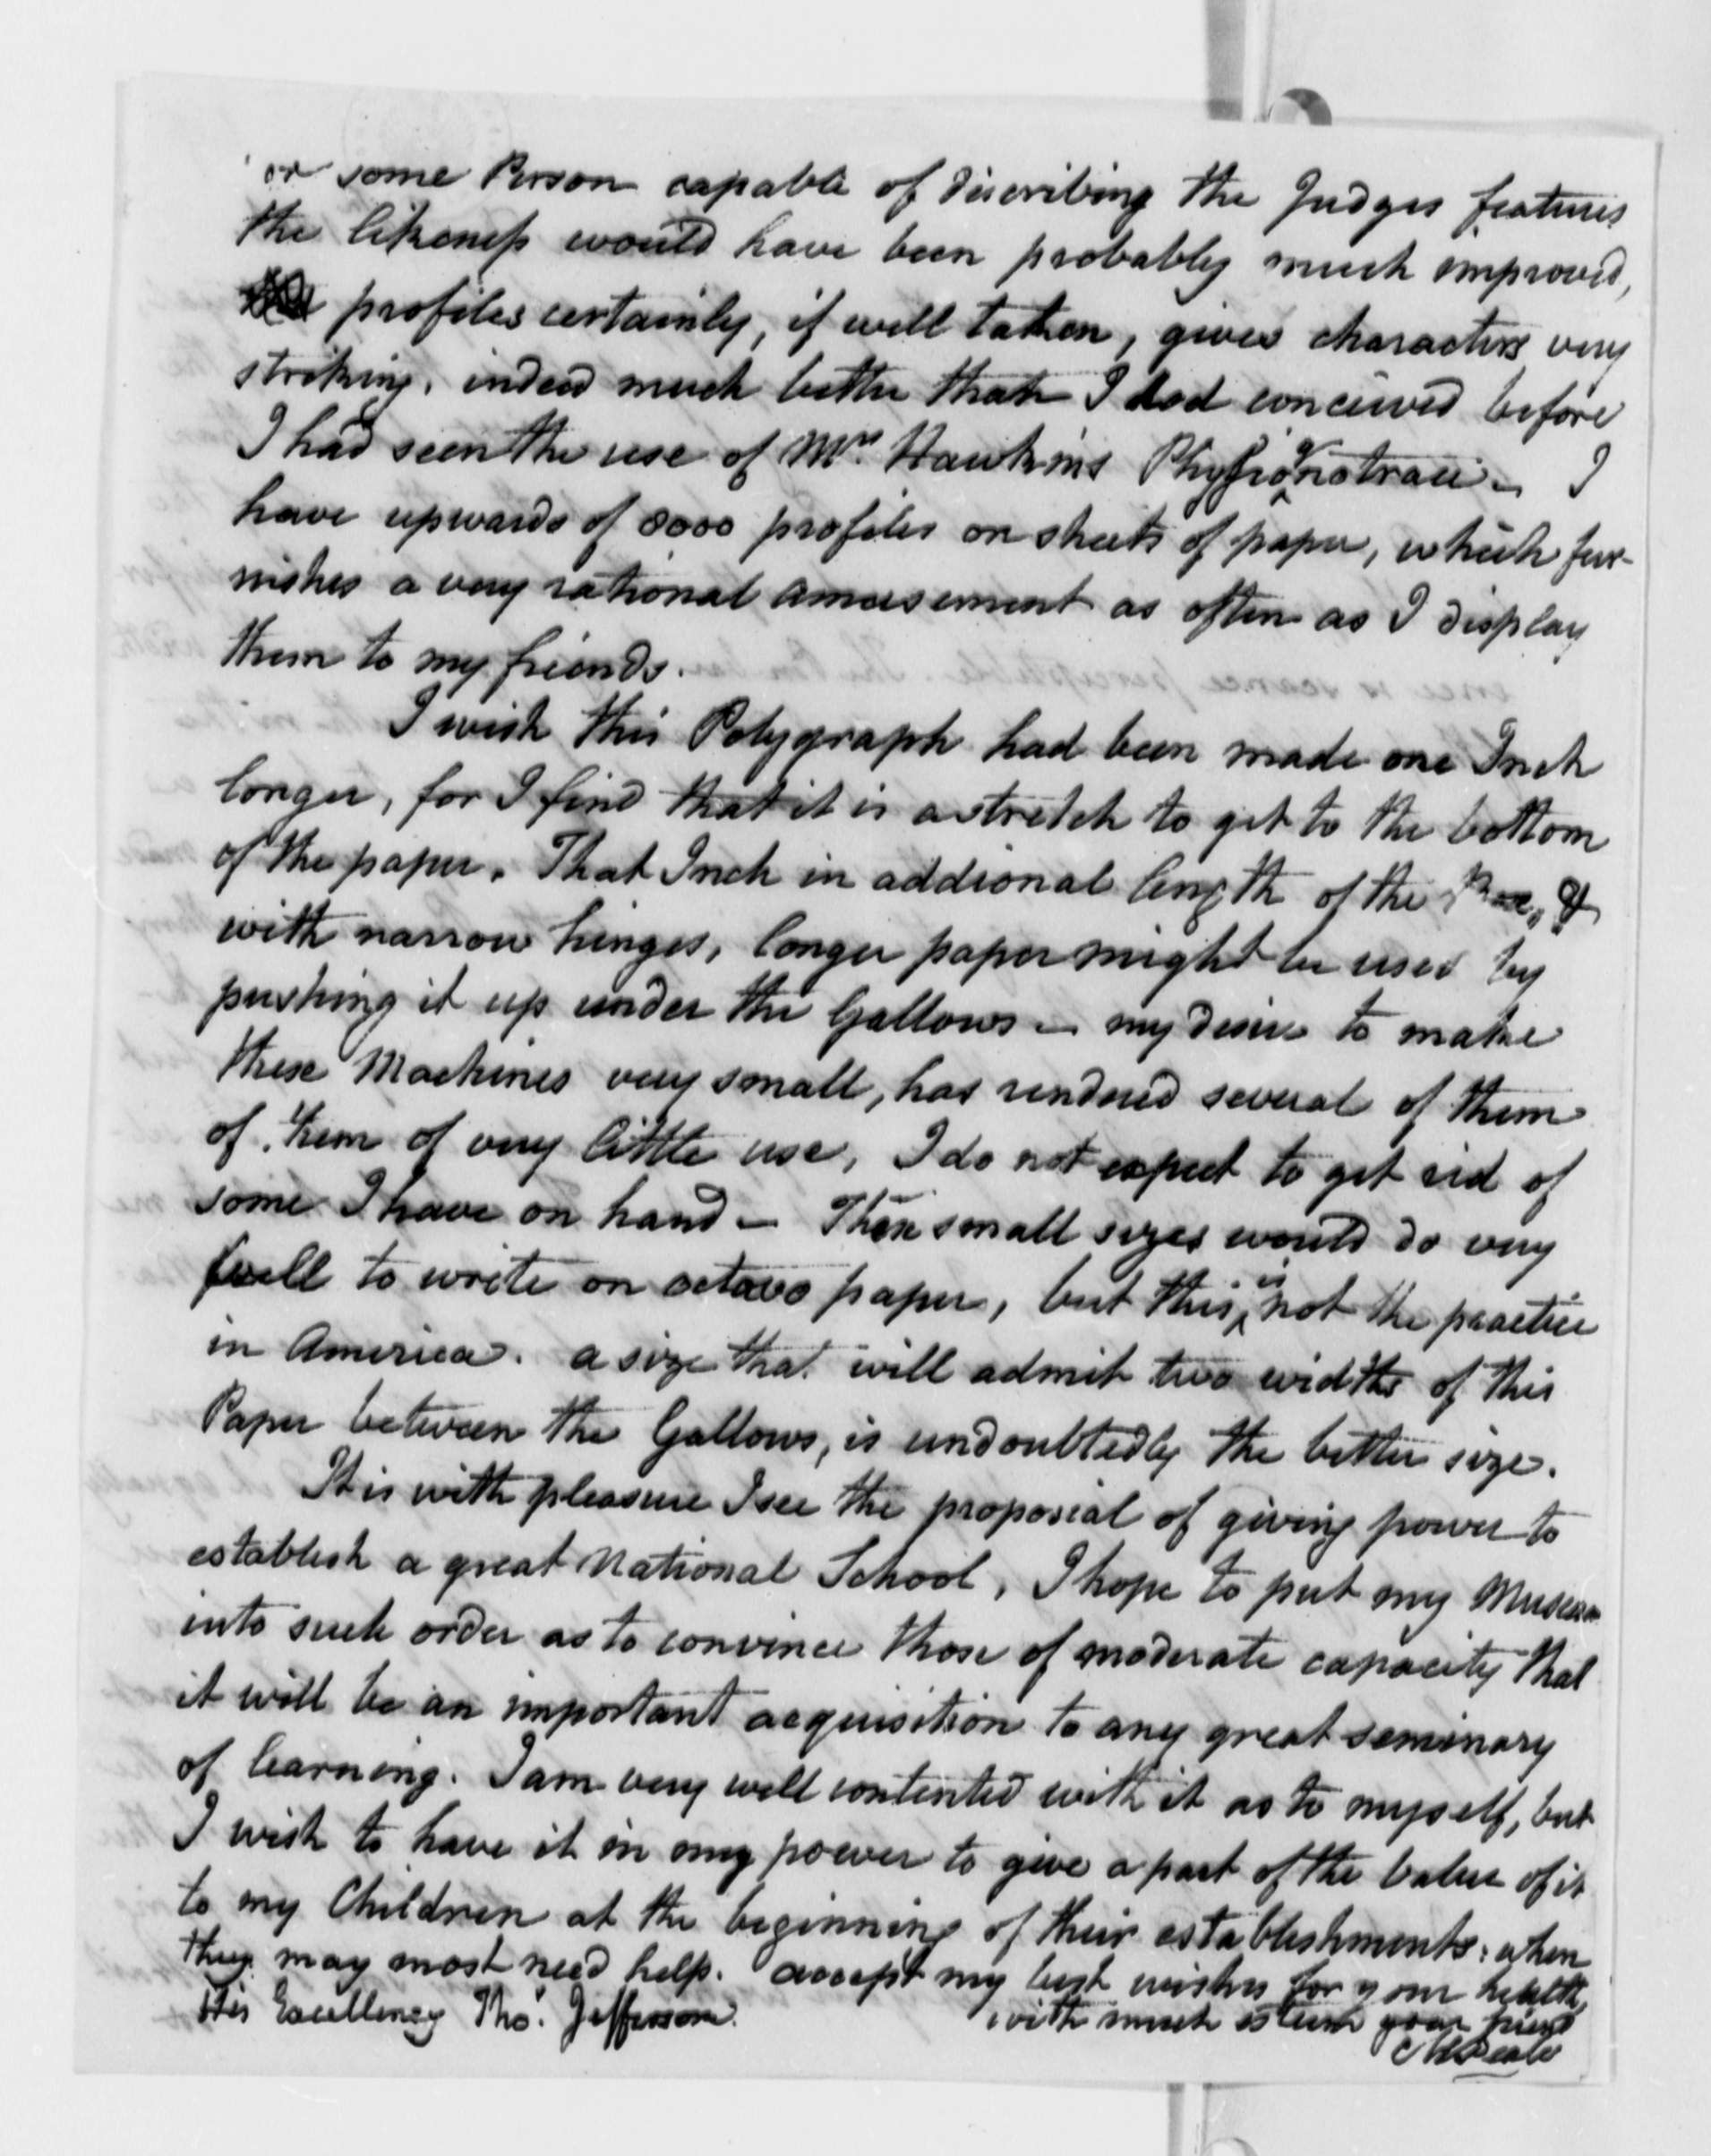 or some Person capable of discribing the Judges features
the likeness would have been probably much improved,
profiles certainly, if well taken, gives characters very
striking. indeed much better than I had conceived before
I had seen the use of Mr. Hawkins Physiognotrace — I
have upwards of 8000 profiles on sheets of paper, which fur-
nishes a very rational amusement as often as I display
them to my friends.
I wish this Polygraph had been made one Inch
longer, for I find that it is a stretch to get to the bottom
of the paper. That Inch in addional length of the Box, &
with narrow hinges, longer paper might be used by
pushing it up under the Gallows — my desire to make
these Machines very small, has rendered several of them
of them of very little use, I do not expect to get rid of
some I have on hand — These small sizes would do very
well to write on octavo paper, but this is not the practice
in America. a size that will admit two widths of this
Paper between the Gallows, is undoubtedly the better size.
It is with pleasure I see the proposial of giving power to
establish a great National School, I hope to put my Museum
into such order as to convince those of moderate capacity that
it will be an important acquisition to any great seminary
of learning. I am very well contented with it as to myself, but
I wish to have it in my power to give a part of the value of it
to my Children at the beginning of their establishments: when
they may most need help. accept my best wishes for your health,
with much esteem your friend
CWPeale
His Excellency Tho.s Jefferson.